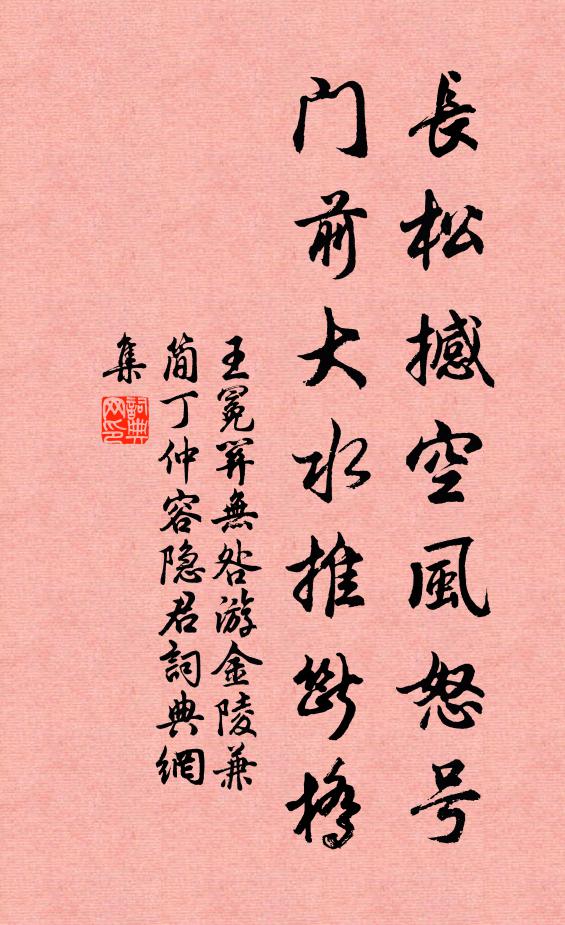 長松撼空風怒号
门前大水推断橋
王冕笄無咎游金陵兼
简丁仲容隐君詞典網
集
詞典
网印